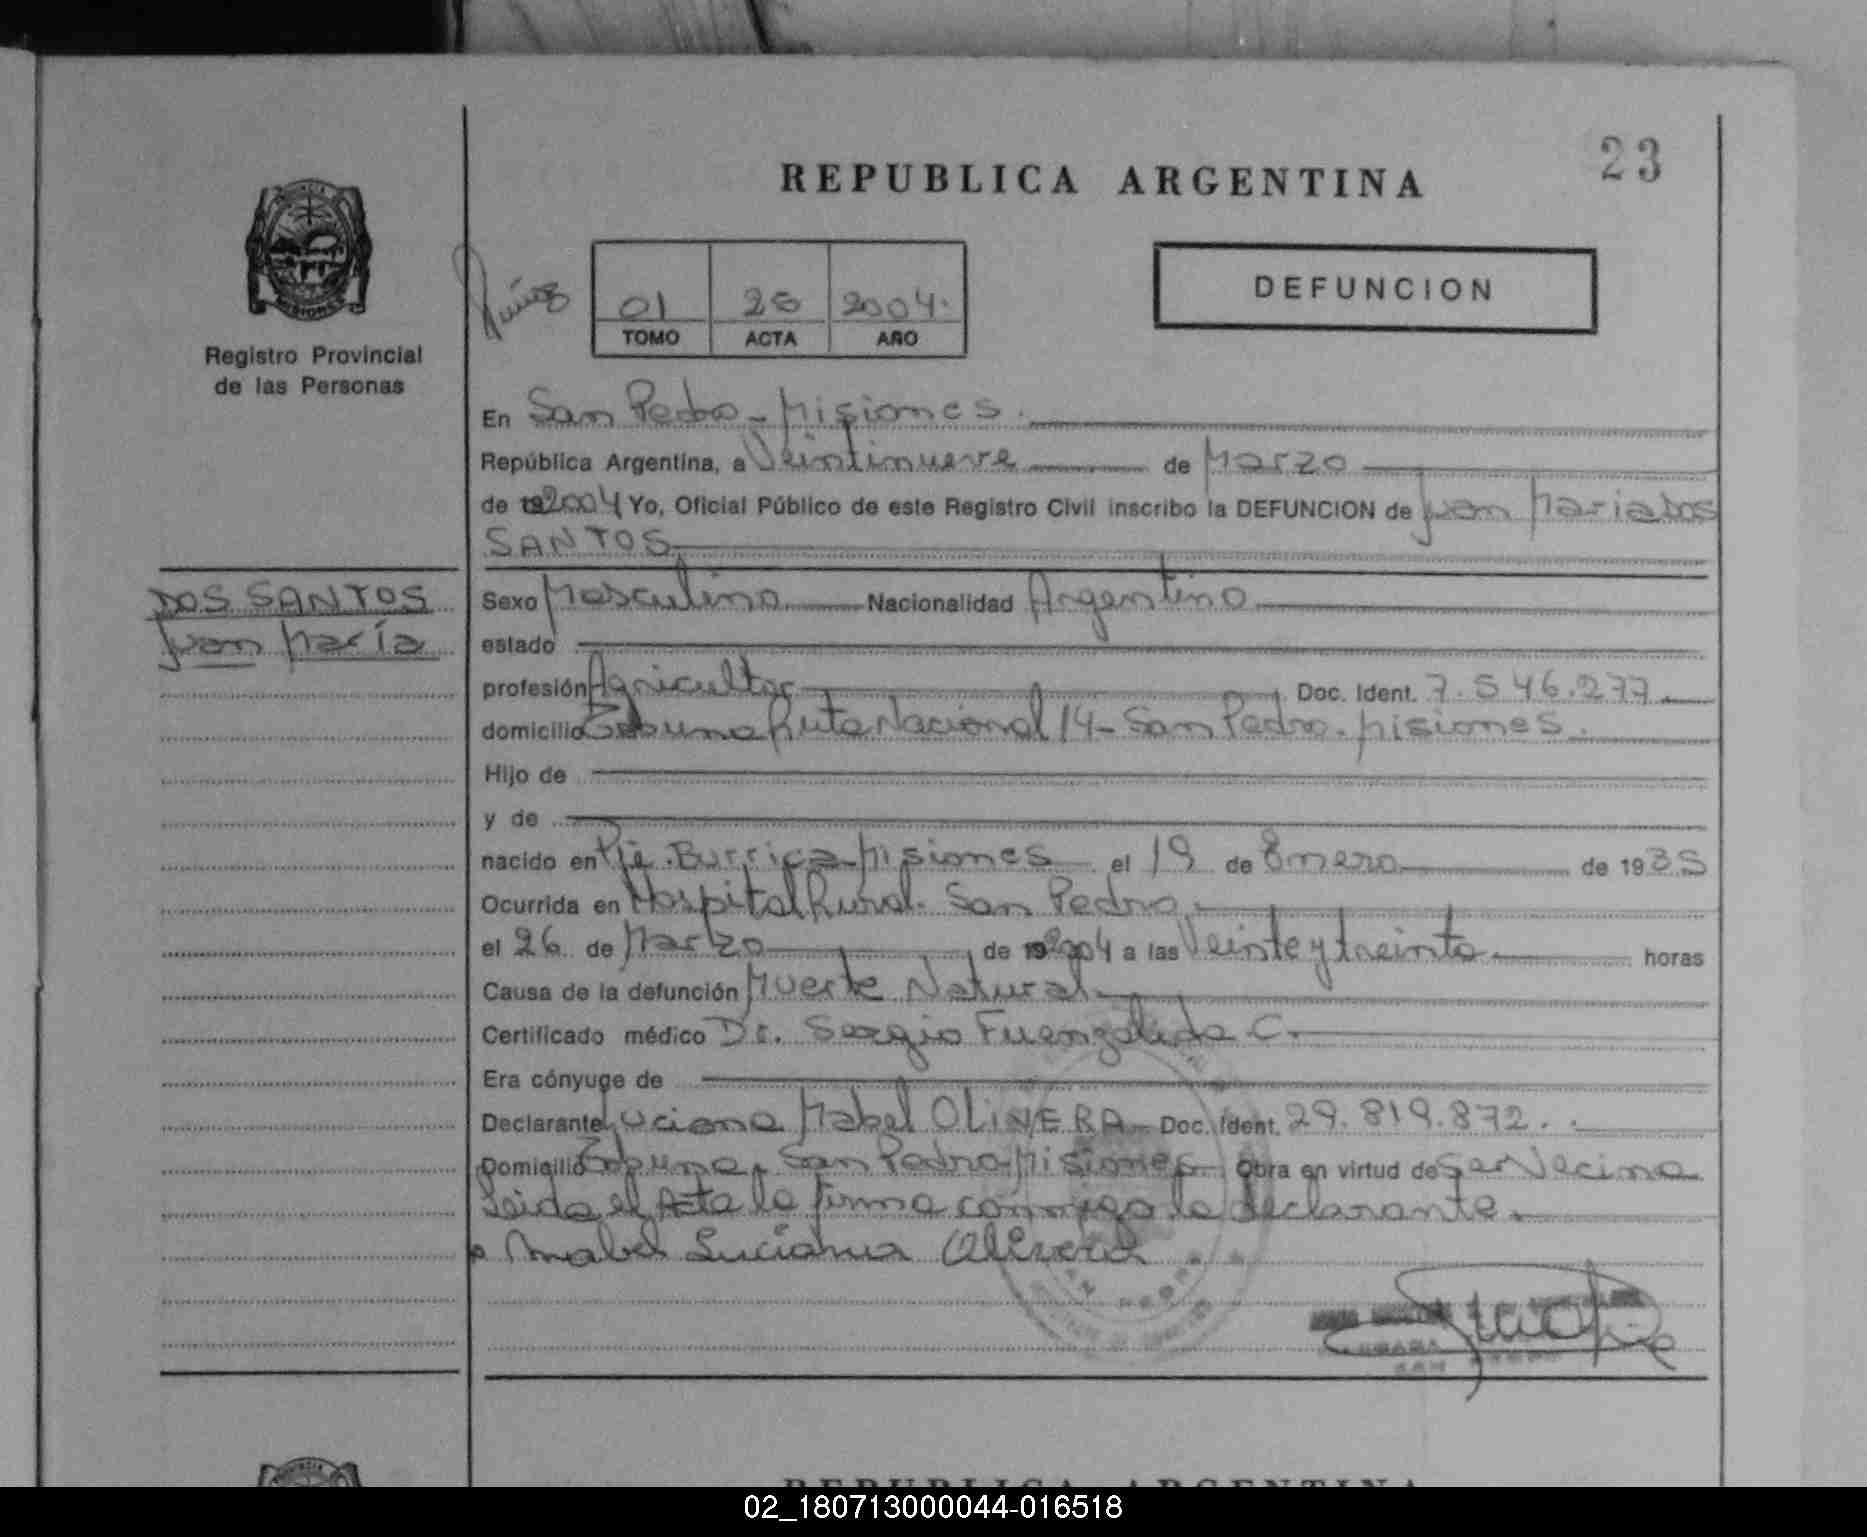 23
REPUBLICA ARGENTINA
DEFUNCION
01 2004.
TOMO ACTA AÑO
Registro Provincial
de las Personas
En San Pedro - Misiones.
República Argentina, a Veintinueve de Marzo
de 192004 Yo, Oficial Público de este Registro Civil inscribo la DEFUNCION de Juan Maria Dos
SANTOS
DOS SANTOS
Juan María
Sexo Masculino Nacionalidad Argentino
estado
profesión Agricultor Doc. Ident. 7.546.277
domicilio Ruta Nacional 14 - San Pedro. Misiones.
Hijo de
y de
nacido en Pje. Misiones el 19 de Enero de 1935
Ocurrida en Hospital Rural. San Pedro
el 26 de Marzo de 192004 a las Veinte y treinta horas
Causa de la defunción Muerte Natural
Certificado médico Dr. Sergio Fuenzalida C.
Era cónyuge de
Declarante Luciana Mabel OLIVERA Doc. Ident. 29.819.872.
Domicilio San Pedro Misiones Obra en virtud de ser Vecina
Leida el Acta la firma conmigo la declarante.
Mabel Luciana Olivera
REPUBLICA ARGENTINA
02_180713000044-016518